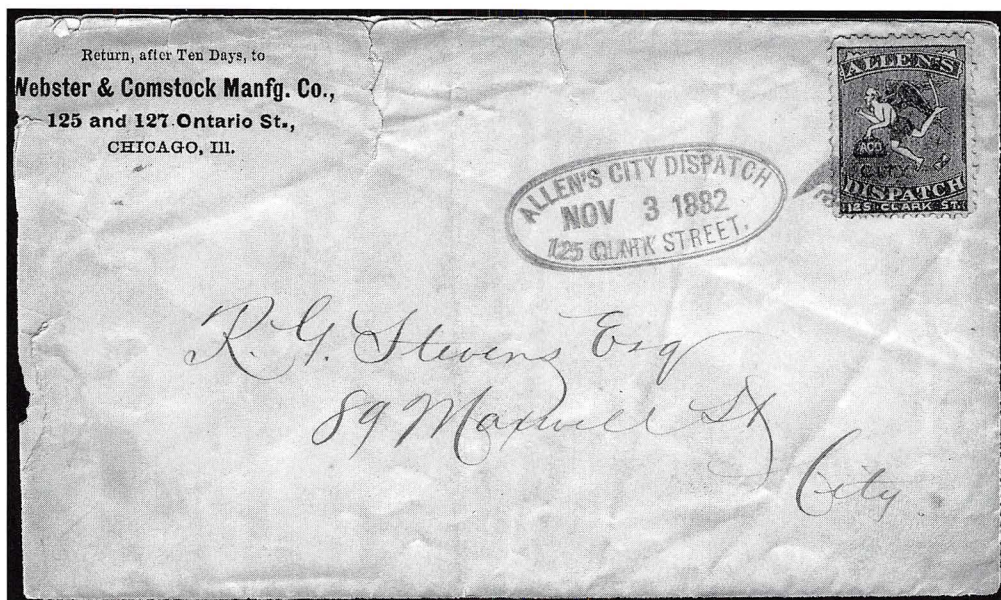 Return, after Ten Days, to
Webster & Comstock Manfg. Co.,
125 and 127 Ontario St.,
CHICAGO, Ill.
ALLEN'S
ACD
CITY
DISPATCH
125 CLARK ST.
ALLEN'S CITY DISPATCH
NOV 3 1882
125 CLARK STREET.
R. G. Stevens Esq
89 Maxwell St
City